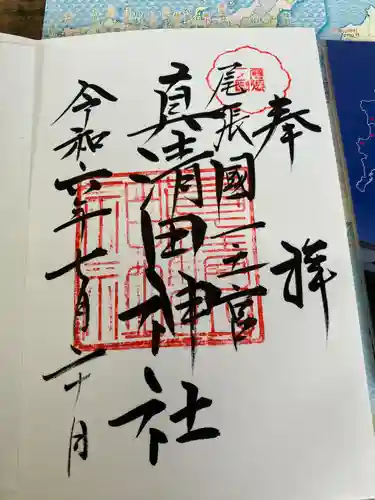 奉拝
尾張國一之宮
真清田神社
令和六年七月二十日